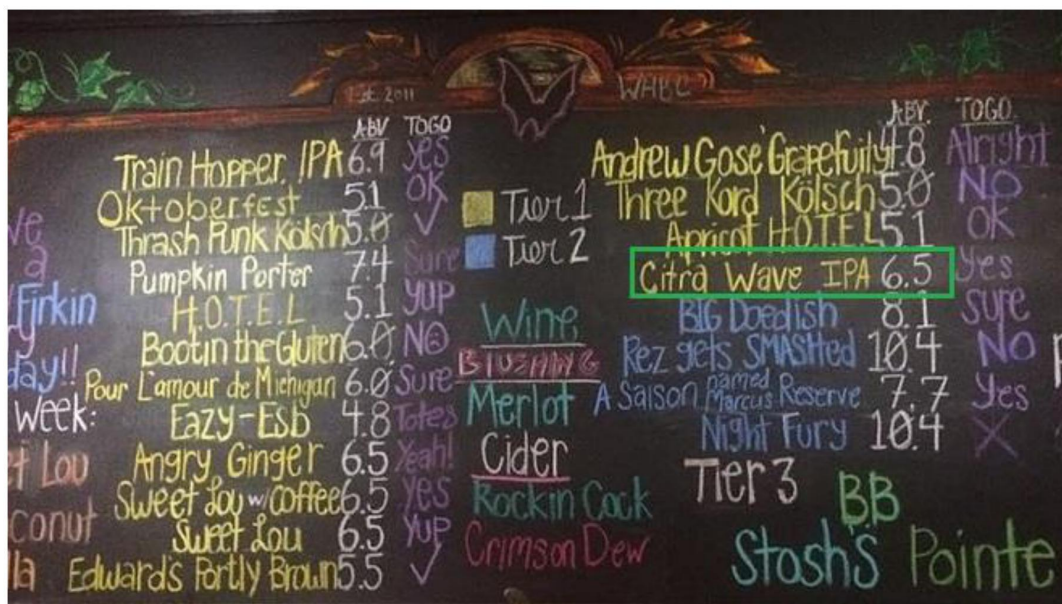 Est. 2011
WABC
ABV TOGO
Train Hopper IPA 6.9 yes
Oktoberfest 5.1 OK
Thrash Punk Kölsch 5.0 ✓
Pumpkin Porter 7.4 Sure
H.O.T.E.L 5.1 yup
Bootin the Gluten 6.0 NO
Pour L'amour de Michigan 6.0 Sure
Eazy-Esb 4.8 Totes
Angry Ginger 6.5 Yeah!
Sweet Lou w/coffee 6.5 Yes
Sweet Lou 6.5 Yup
Edward's Portly Brown 5.5 ✓
ve
a
Firkin
y
day!!
week:
et Lou
conut
lla
Tier 1
Tier 2
Wine
Merlot
Cider
Rockin Cock
Crimson Dew
ABV. TOGO
Andrew Gose Grapefruity 4.8 Alright
Three Kord Kölsch 5.0 NO
Apricot H.O.T.E.L 5.1 OK
Citra Wave IPA 6.5 Yes
BIG Doedish 8.1 sure
Rez gets SMASHted 10.4 NO
A Saison named Marcus Reserve 7.7 Yes
Night Fury 10.4 X
Tier 3
BB
Stosh's Pointe